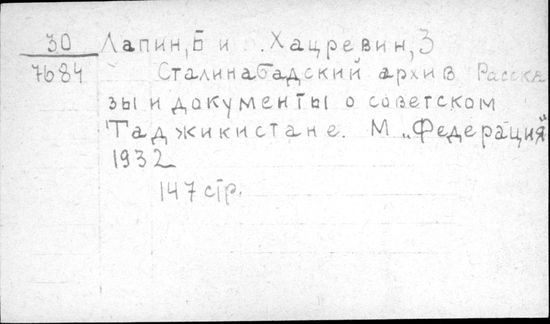 30 Лапин, Б и Хацревин, З
7684 Сталинабадский архив Расска
зы и документы о советском
Таджикистане. М „Федерация“
1932
147 стр.